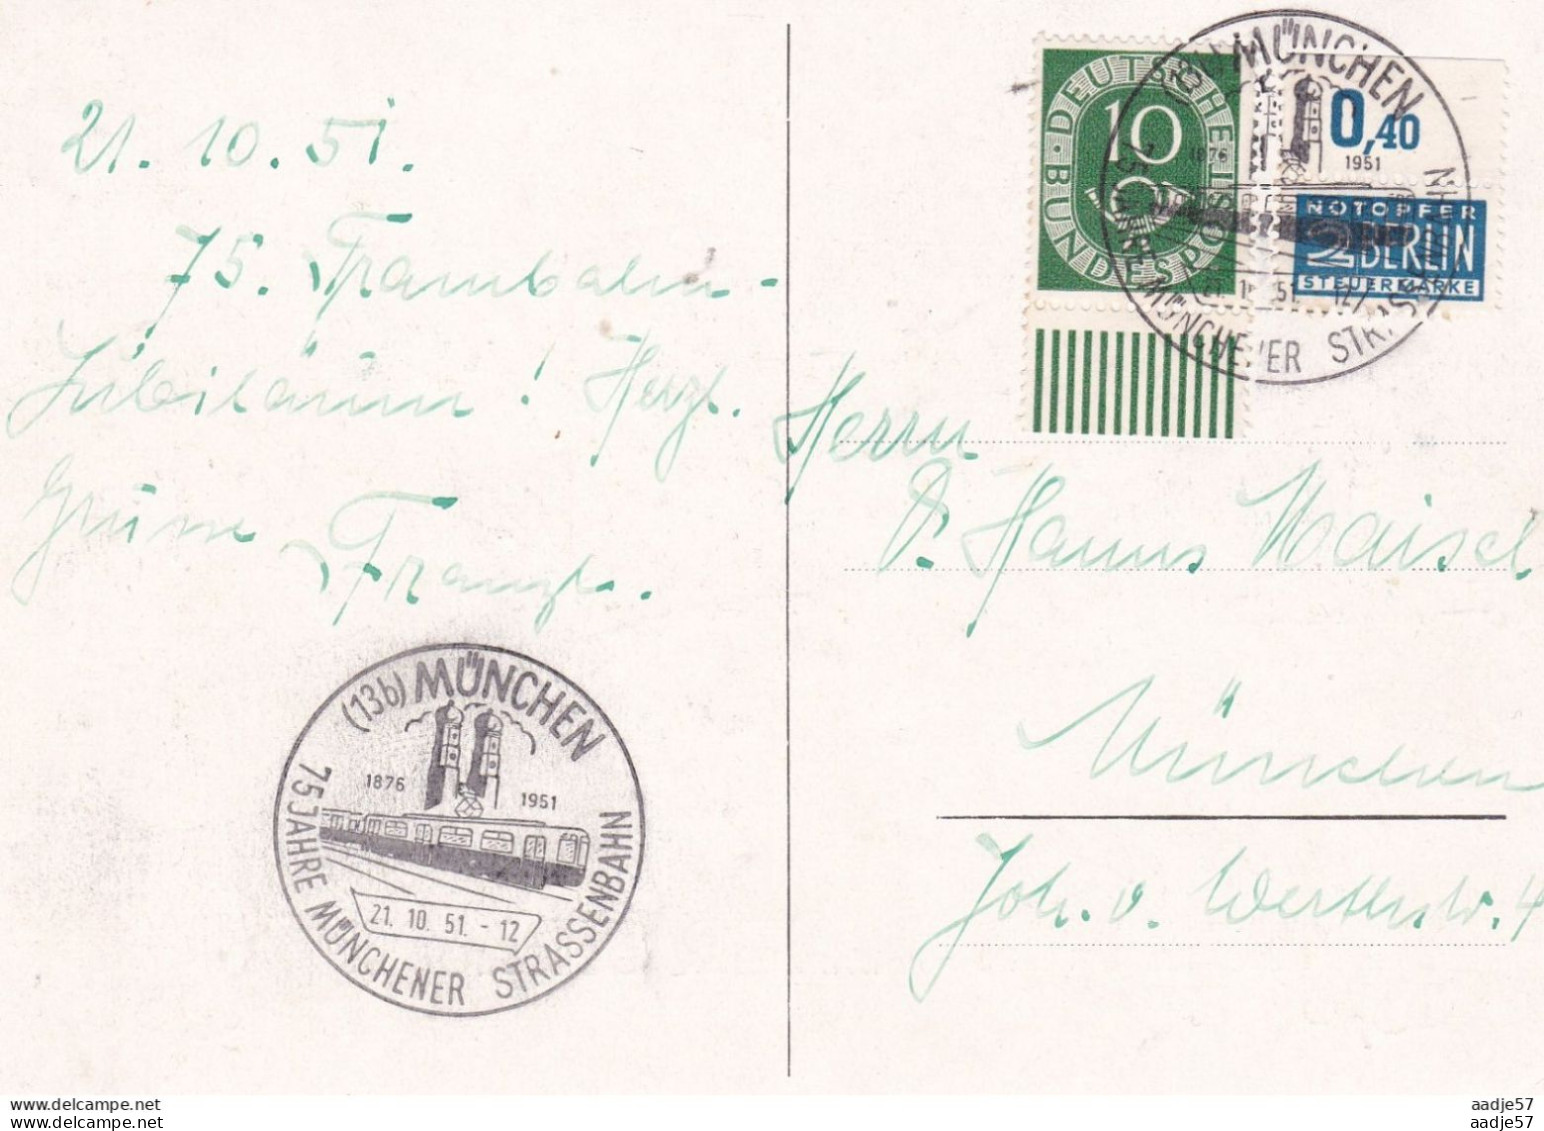 21. 10. 51.
75. Trambahn-
Jubiläum! Herzl.
Grüsse Franzl.
(13b) MÜNCHEN
1876 1951
21. 10. 51. - 12
75 JAHRE MÜNCHENER STRASSENBAHN
DEUTSCHE BUNDESPOST
10
MÜNCHEN
1876 1951
75 JAHRE MÜNCHENER STRASSENBAHN
0,40
NOTOPFER
2 BERLIN
STEUERMARKE
Herrn
Dr. Hanns Maisel
München
Joh. v. Werthstr. 4
aadje57
aadje57
www.delcampe.net
www.delcampe.net